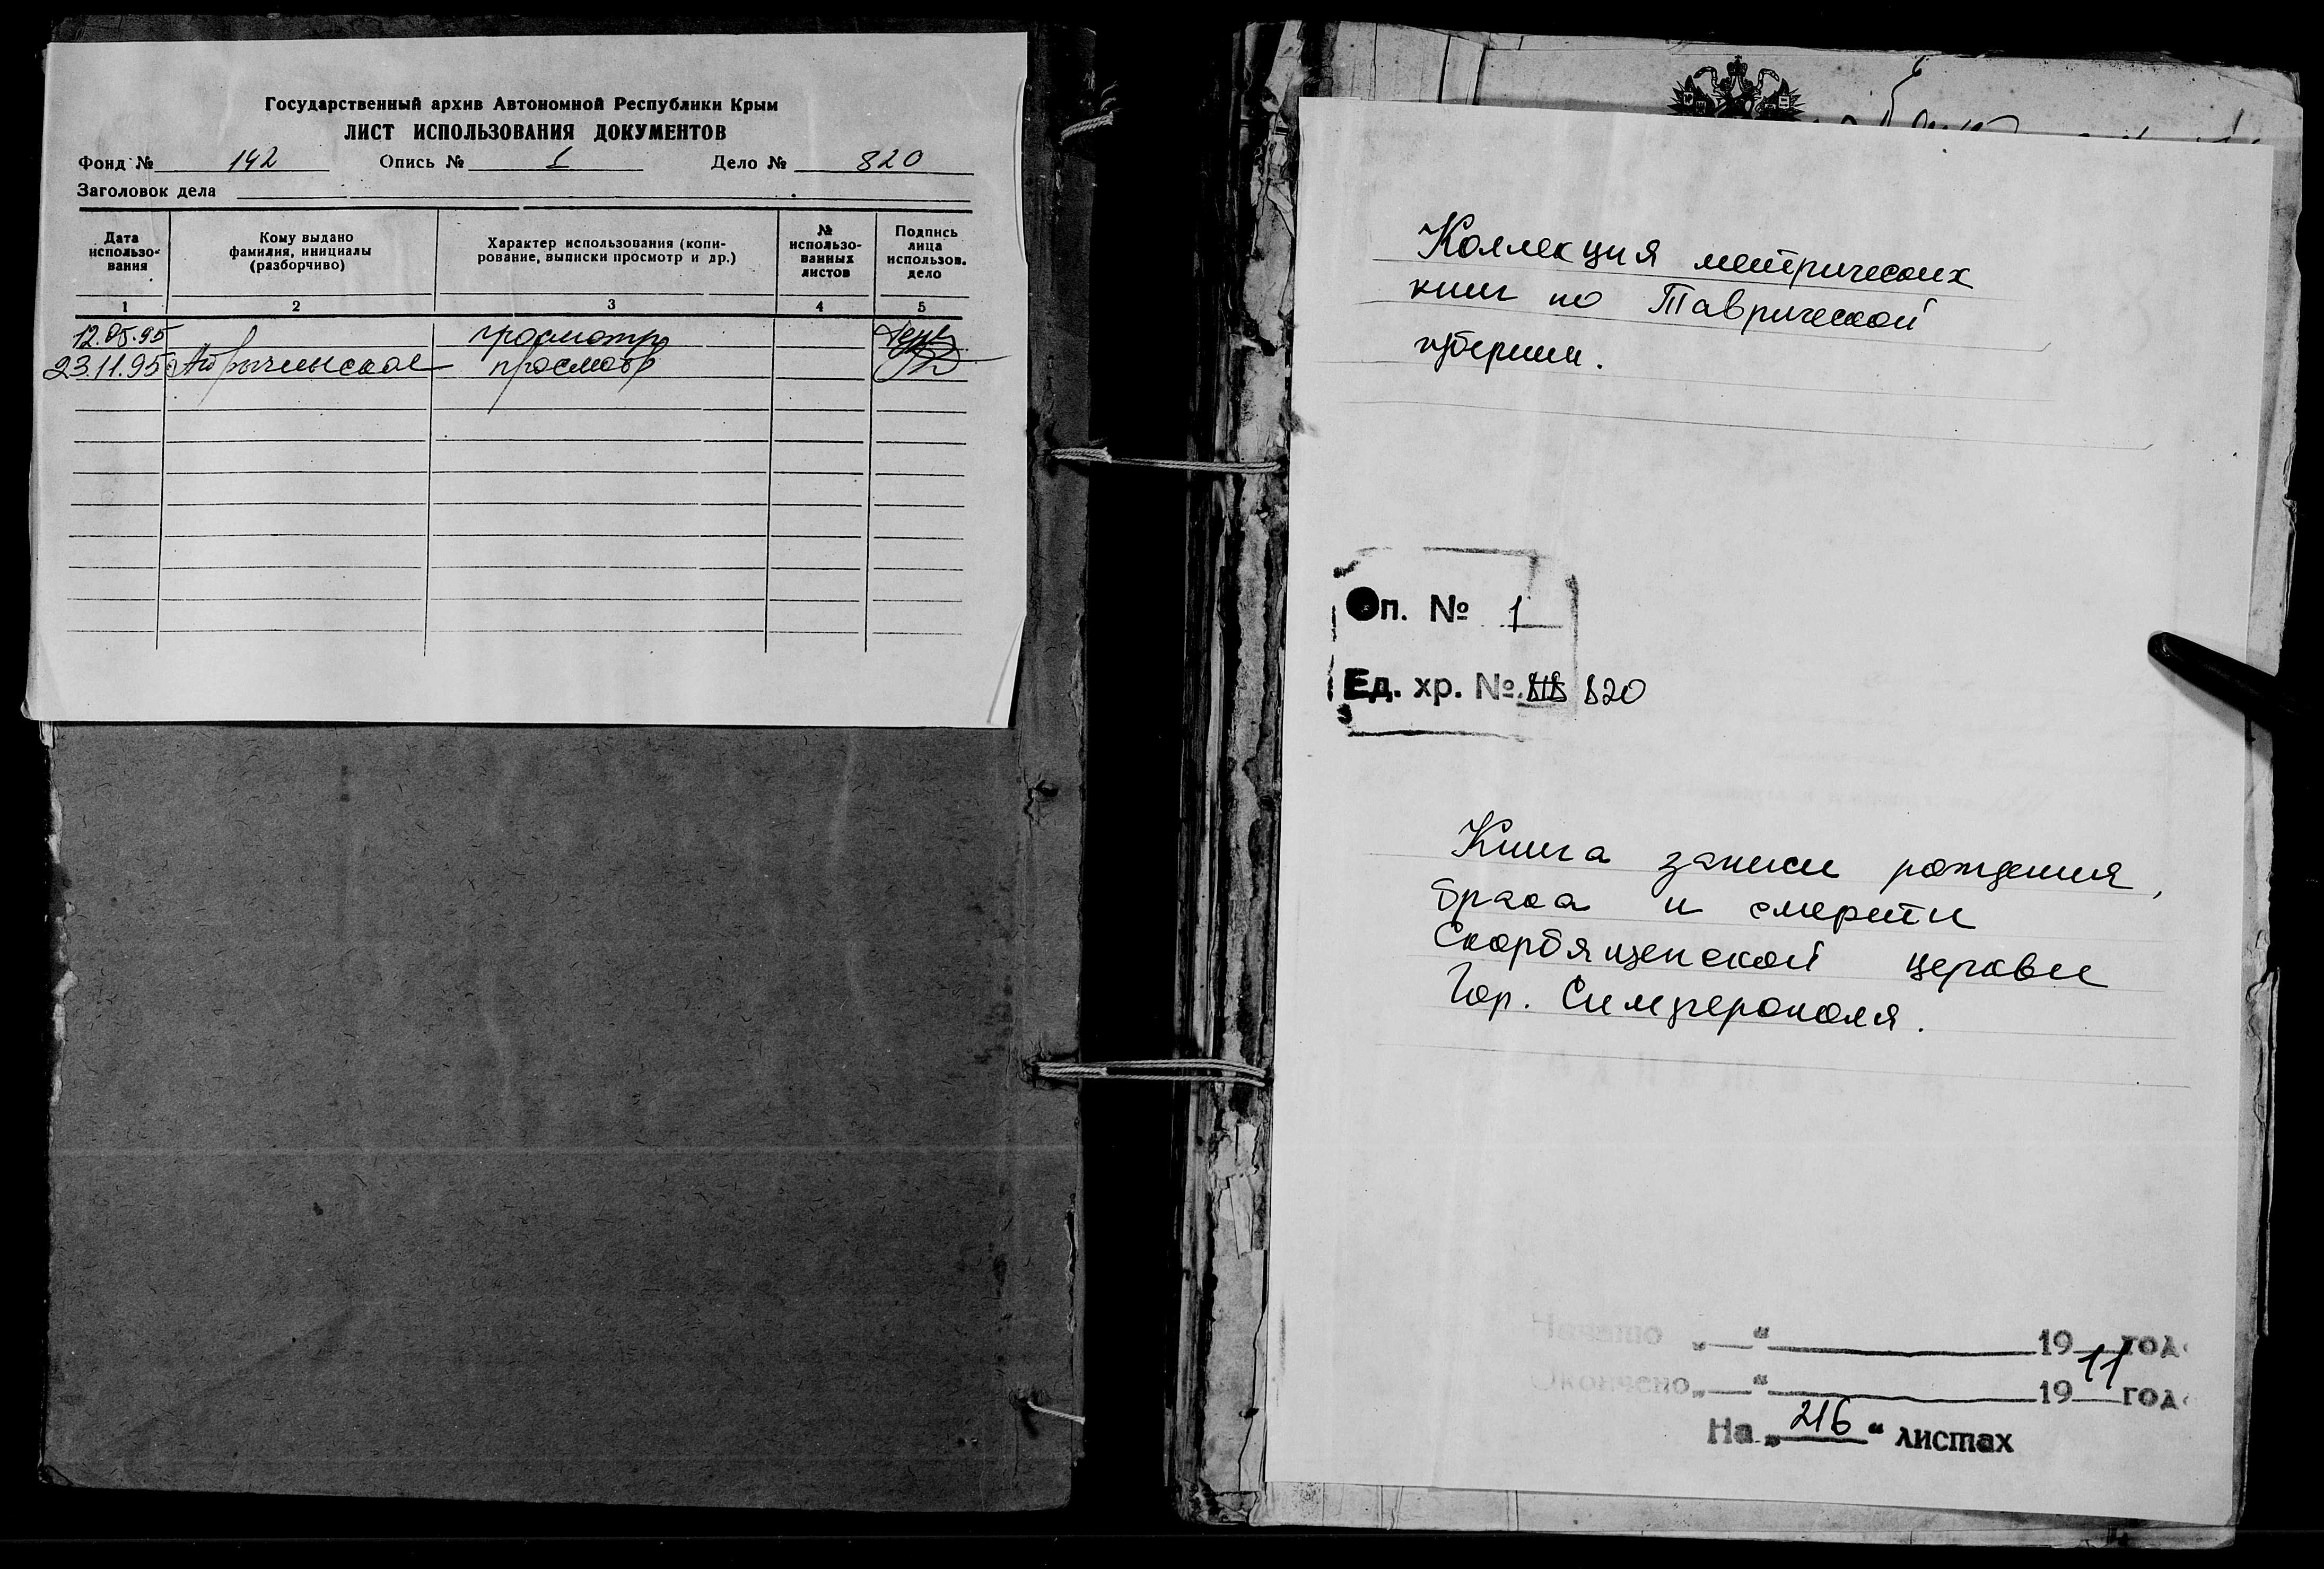 Государственный архив Автономной Республики Крым
ЛИСТ ИСПОЛЬЗОВАНИЯ ДОКУМЕНТОВ
Фонд № 142 Опись № 1 Дело № 820
Заголовок дела
Дата использо-вания
Кому выдано фамилия, инициалы (разборчиво)
Характер использования (копи-рование, выписки просмотр и др.)
№ использо-ванных листов
Подпись лица использов. дело
1 2 3 4 5
12.05.95 просмотр
23.11.95 просмотр
Коллекция метрических
книг по Таврической
губернии.
Оп. № 1
Ед. хр. № 820
Книга записи рождения,
брака и смерти
Скорбященской церкви
Гор. Симферополя.
Начато „ “ 19 год
Окончено „ “ 1911 год
На „216“ листах